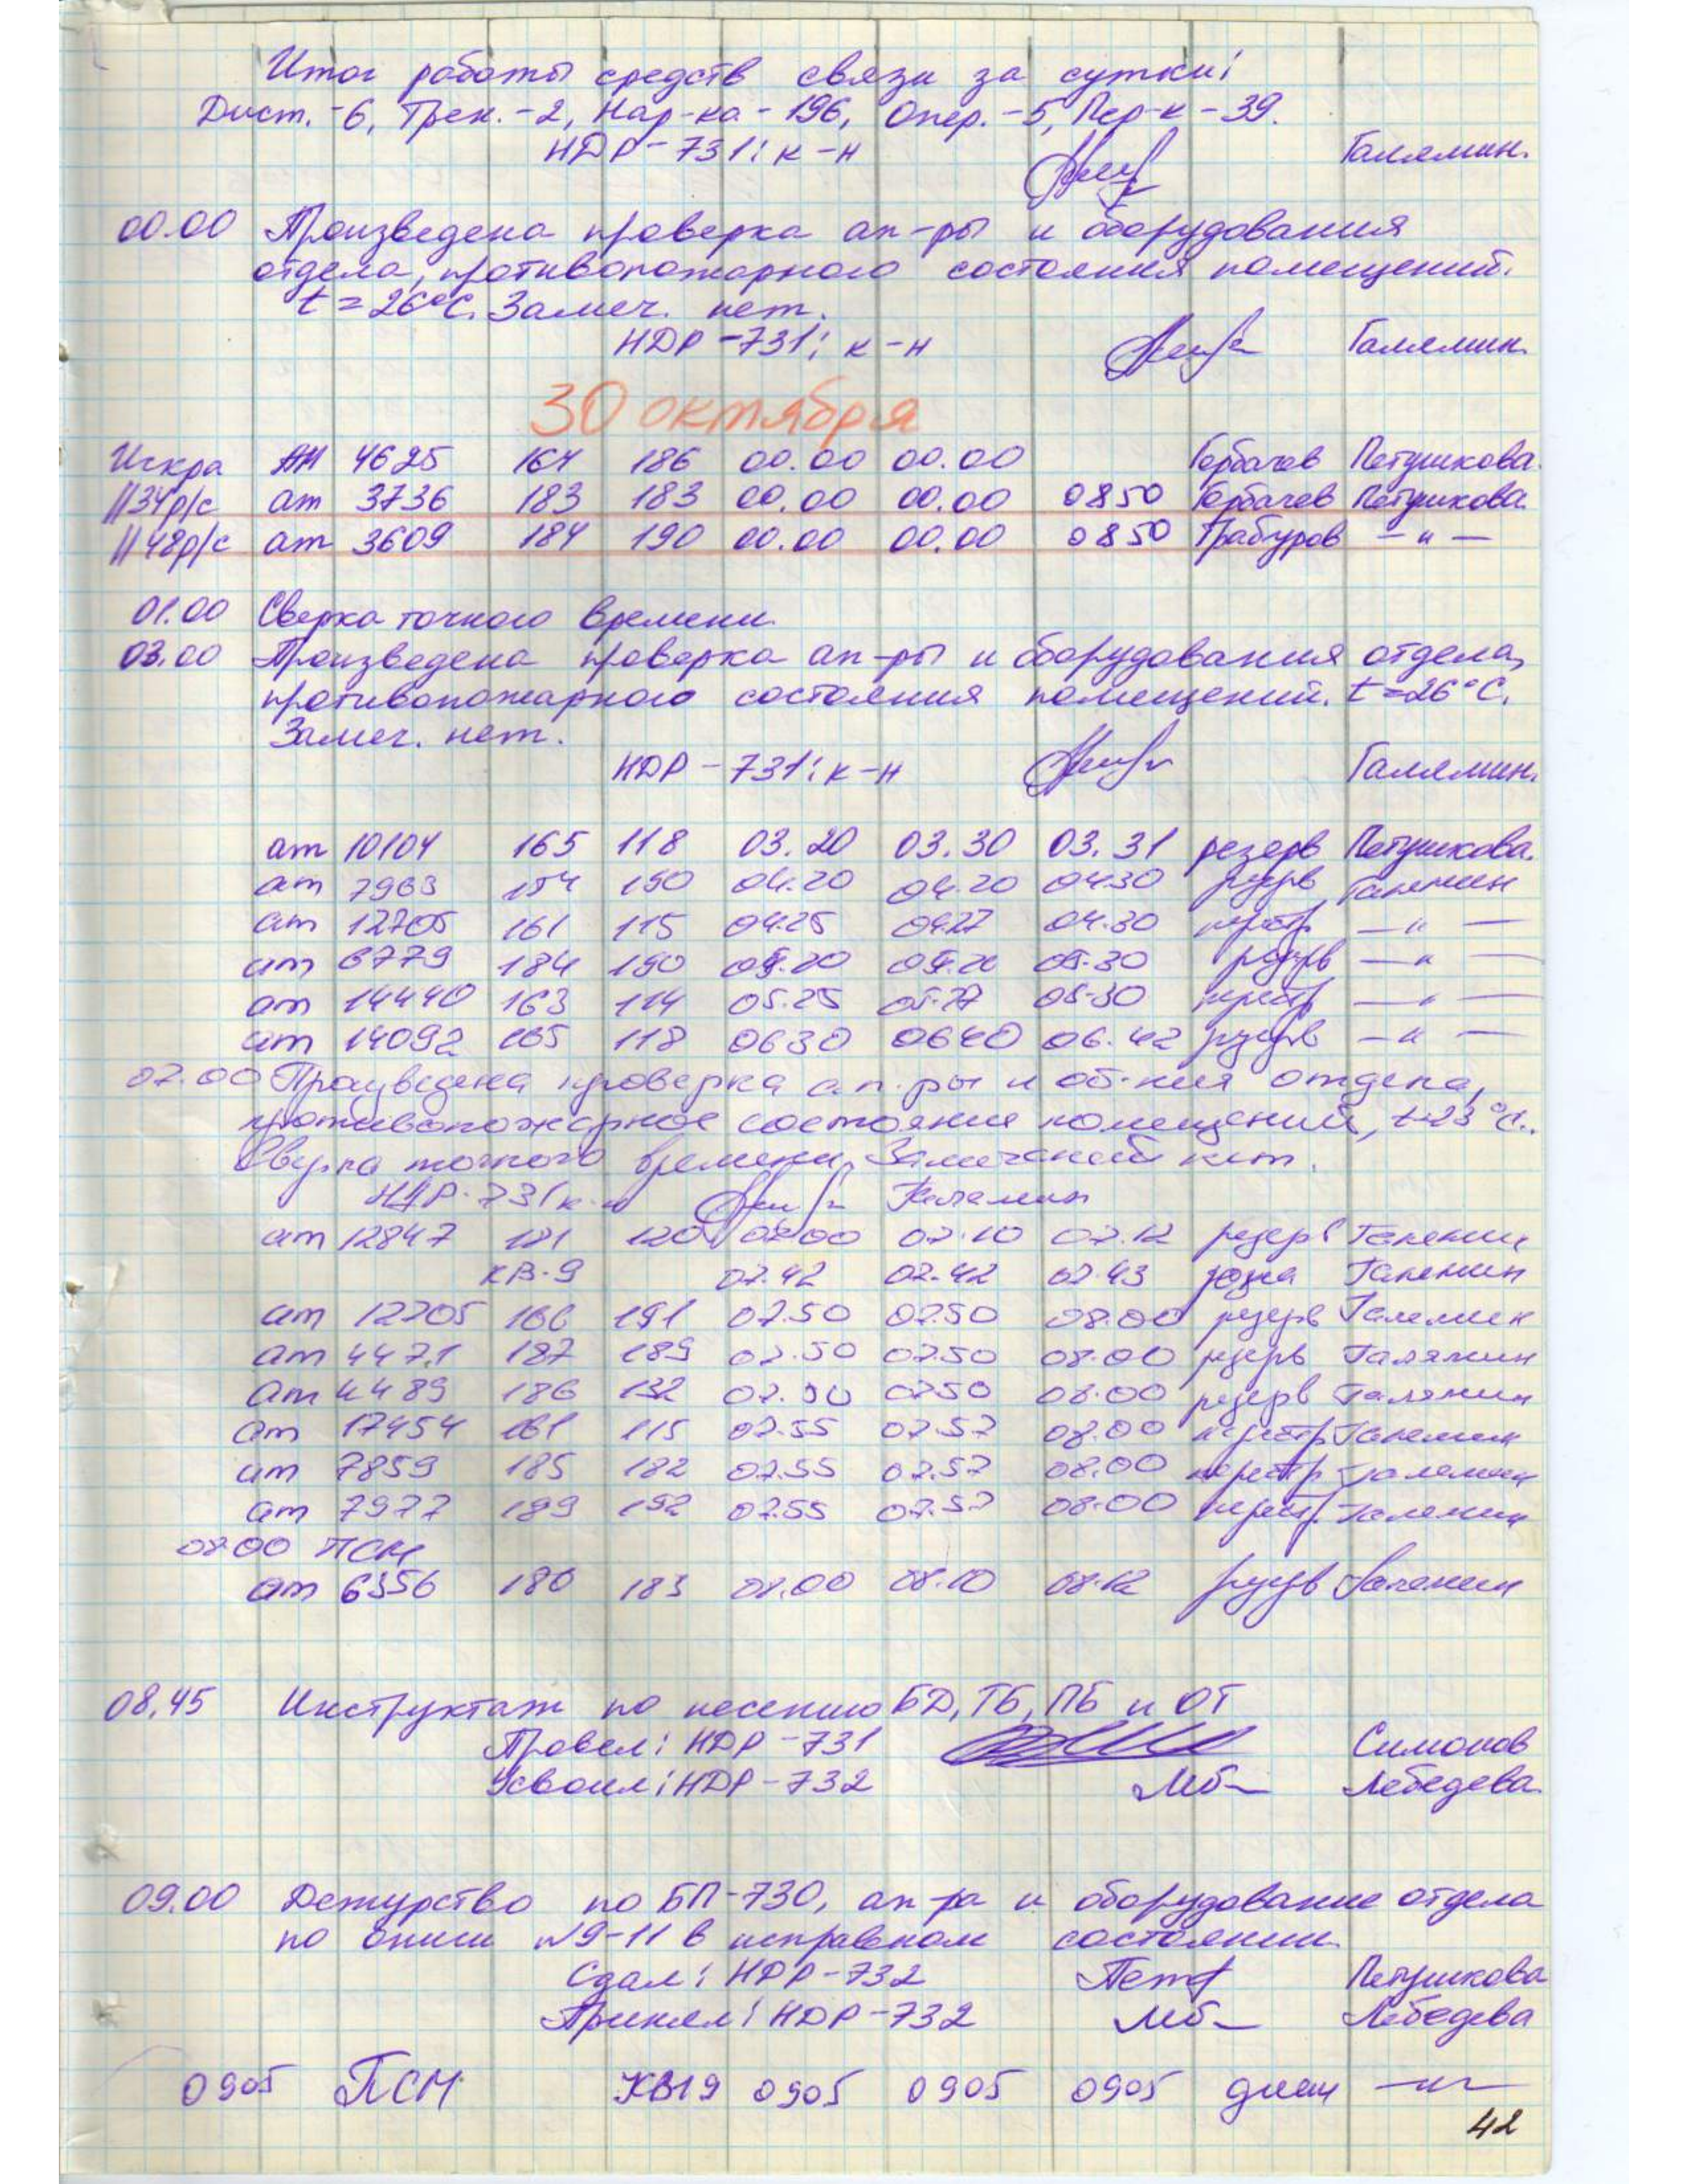 Итог работы средств связи за сутки:
Дист. -6, Трен. -2, Нар-ка - 196, Опер. -5, Пер-к - 39.
НДР-731: к-н Галямин.
00.00 Произведена проверка ап-ры и оборудования
отдела, противопожарного состояния помещений.
t = 26°С. Замеч. нет.
НДР-731: к-н Галямин
30 октября
Искра АН 4625 164 186 00.00 00.00 Горбачев Петушкова.
1134р/с ат 3736 183 183 00.00 00.00 0850 Горбачев Петушкова.
1148р/с ат 3609 184 190 00.00 00.00 0850 Трабуров — " —
01.00 Сверка точного времени
03.00 Произведена проверка ап-ры и оборудования отдела,
противопожарного состояния помещений. t=26°С.
Замеч. нет.
НДР-731: к-н Галямин.
ат 10104 165 118 03.20 03.30 03.31 резерв Петушкова.
ат 7963 184 190 04.20 04.20 0430 резерв Галямин
ат 12705 161 115 04.25 04.27 04.30 перестр — " —
ат 6779 184 190 05.20 05.20 05.30 резерв — " —
ат 14440 163 114 05.25 05.27 05-30 перестр — " —
ат 14092 165 118 0630 0640 06.42 резерв — " —
07.00 Произведена проверка ап.ры и об-ния отдела,
противопожарное состояние помещений, t=23°С.
Сверка точного времени. Замечаний нет.
НДР-731 к-н Галямин
ат 12847 181 120 07.00 07.10 07.12 резерв Галямин
КВ-9 07.42 07.42 07.43 Галямин
ат 12705 166 191 07.50 0750 08.00 резерв Галямин
ат 4471 187 189 07.50 0750 08.00 резерв Галямин
ат 4489 186 132 07.50 0750 08.00 резерв Галямин
ат 17454 161 115 07.55 07.57 08.00 перестр Галямин
ат 7859 185 182 07.55 07.57 08.00 перестр Галямин
ат 7977 189 192 07.55 07.57 08.00 перестр. Галямин
0800 ПСМ
ат 6356 180 183 08.00 08.10 08.12 резерв Галямин
08.45 Инструктаж по несению БД, ТБ, ПБ и ОТ
Провел: НДР-731 Симонов
Усвоил: НДР-732 Лебедева.
09.00 Дежурство по БП-730, ап-ра и оборудование отдела
по описи №9-11 в исправном состоянии.
Сдал: НДР-732 Петушкова
Принял: НДР-732 Лебедева
0905 ПСМ КВ19 0905 0905 0905 — " —
42